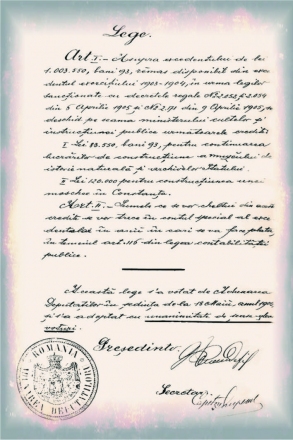 Lege.
Art. I.- Asupra excedentului de lei
1.003.550, bani 93, rămas disponibil din exce
dentul exercițiului 1903-1904, în urma legilor
sancționate cu decretele regale No 2.252 și 2.054
din 5 Aprilie 1905 și No 2.91 din 9 Aprilie 1905, se
deschid pe seama ministerului cultelor și
instrucțiunei publice urmatoarele credite
I Lei 83.550, bani 93, pentru continuarea
lucrărilor de construcțiune a museului de
istorie naturală și archivelor Statului.
I Lei 120.000 pentru construcțiunea unei
moschee în Constanța.
Art. II.- Sumele ce se vor cheltui din aceste
credite se vor trece în contul special al exce
dentelor în anii în cari se va face plata
în temeiul art. 116 din legea contabilității
publice.
Această lege s'a votat de Adunarea
Deputaților în ședința de la 18 1905
și s'a adoptat cu unanimitate de
voturi.
Președinte,
Secretar,
ROMANIA
ADUNAREA DEPUTATILOR